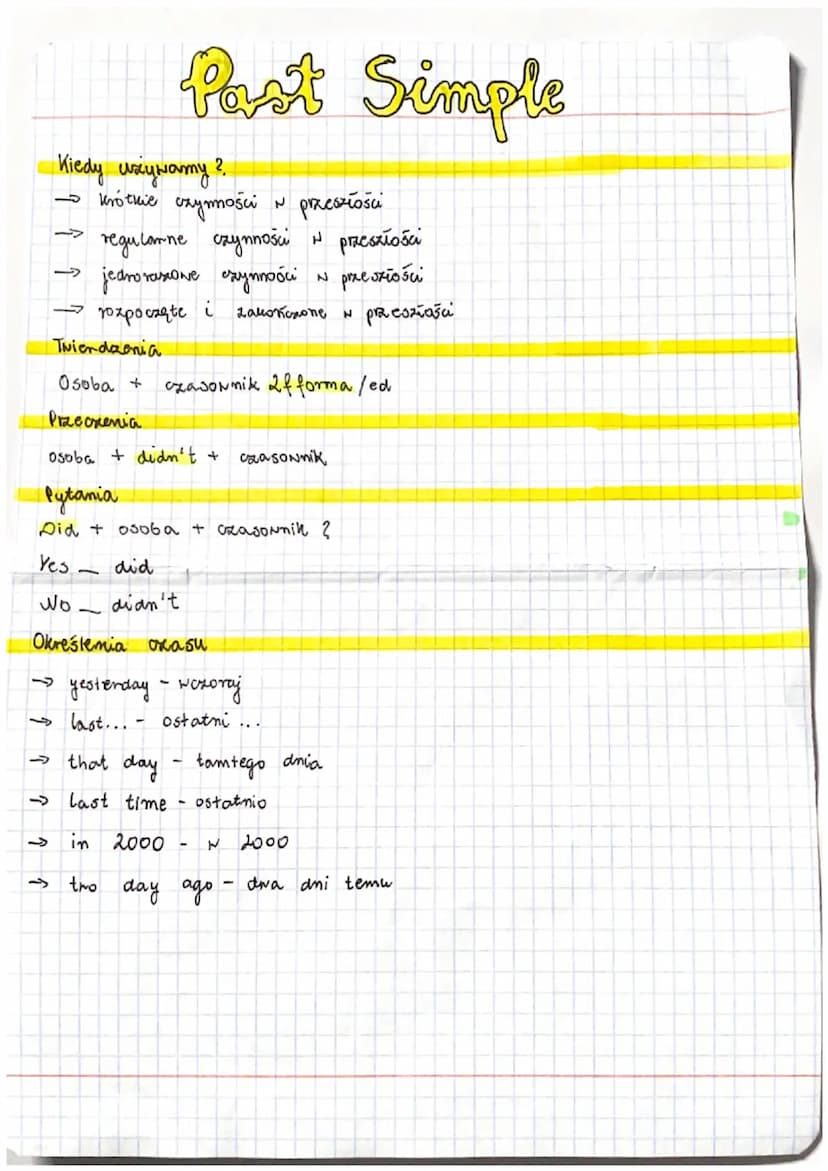 Past Simple
Kiedy używamy?
→ krótkie czynności w przeszłości
→ regularne czynności w przeszłości
→ jednorazowe czynności w przeszłości
→ rozpoczęte i zakończone w przeszłości
Twierdzenia
Osoba + czasownik 2f forma/ed
Przeczenia
osoba + didn't + czasownik
Pytania
Did + osoba + czasownik?
Yes _ did
No _ didn't
Określenia czasu
→ yesterday - wczoraj
→ last... - ostatni ...
→ that day - tamtego dnia
→ last time - ostatnio
→ in 2000 - w 2000
→ two day ago - dwa dni temu